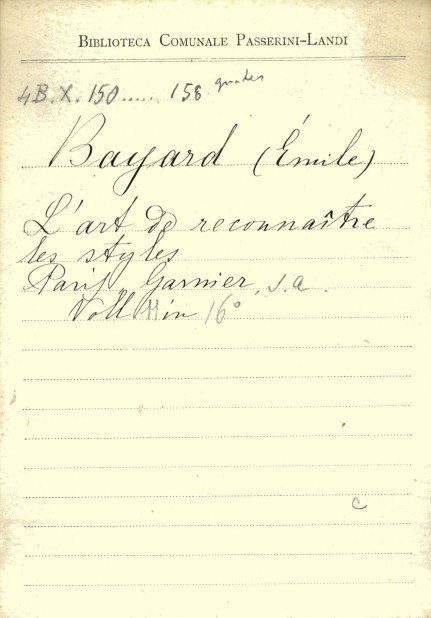 BIBLIOTECA COMUNALE PASSERINI-LANDI
4B. X. 150..... 158
Bayard (Émile)
L'art de reconnaître
les styles
Paris, Garnier, s.a.
Voll 11 in 16°
c